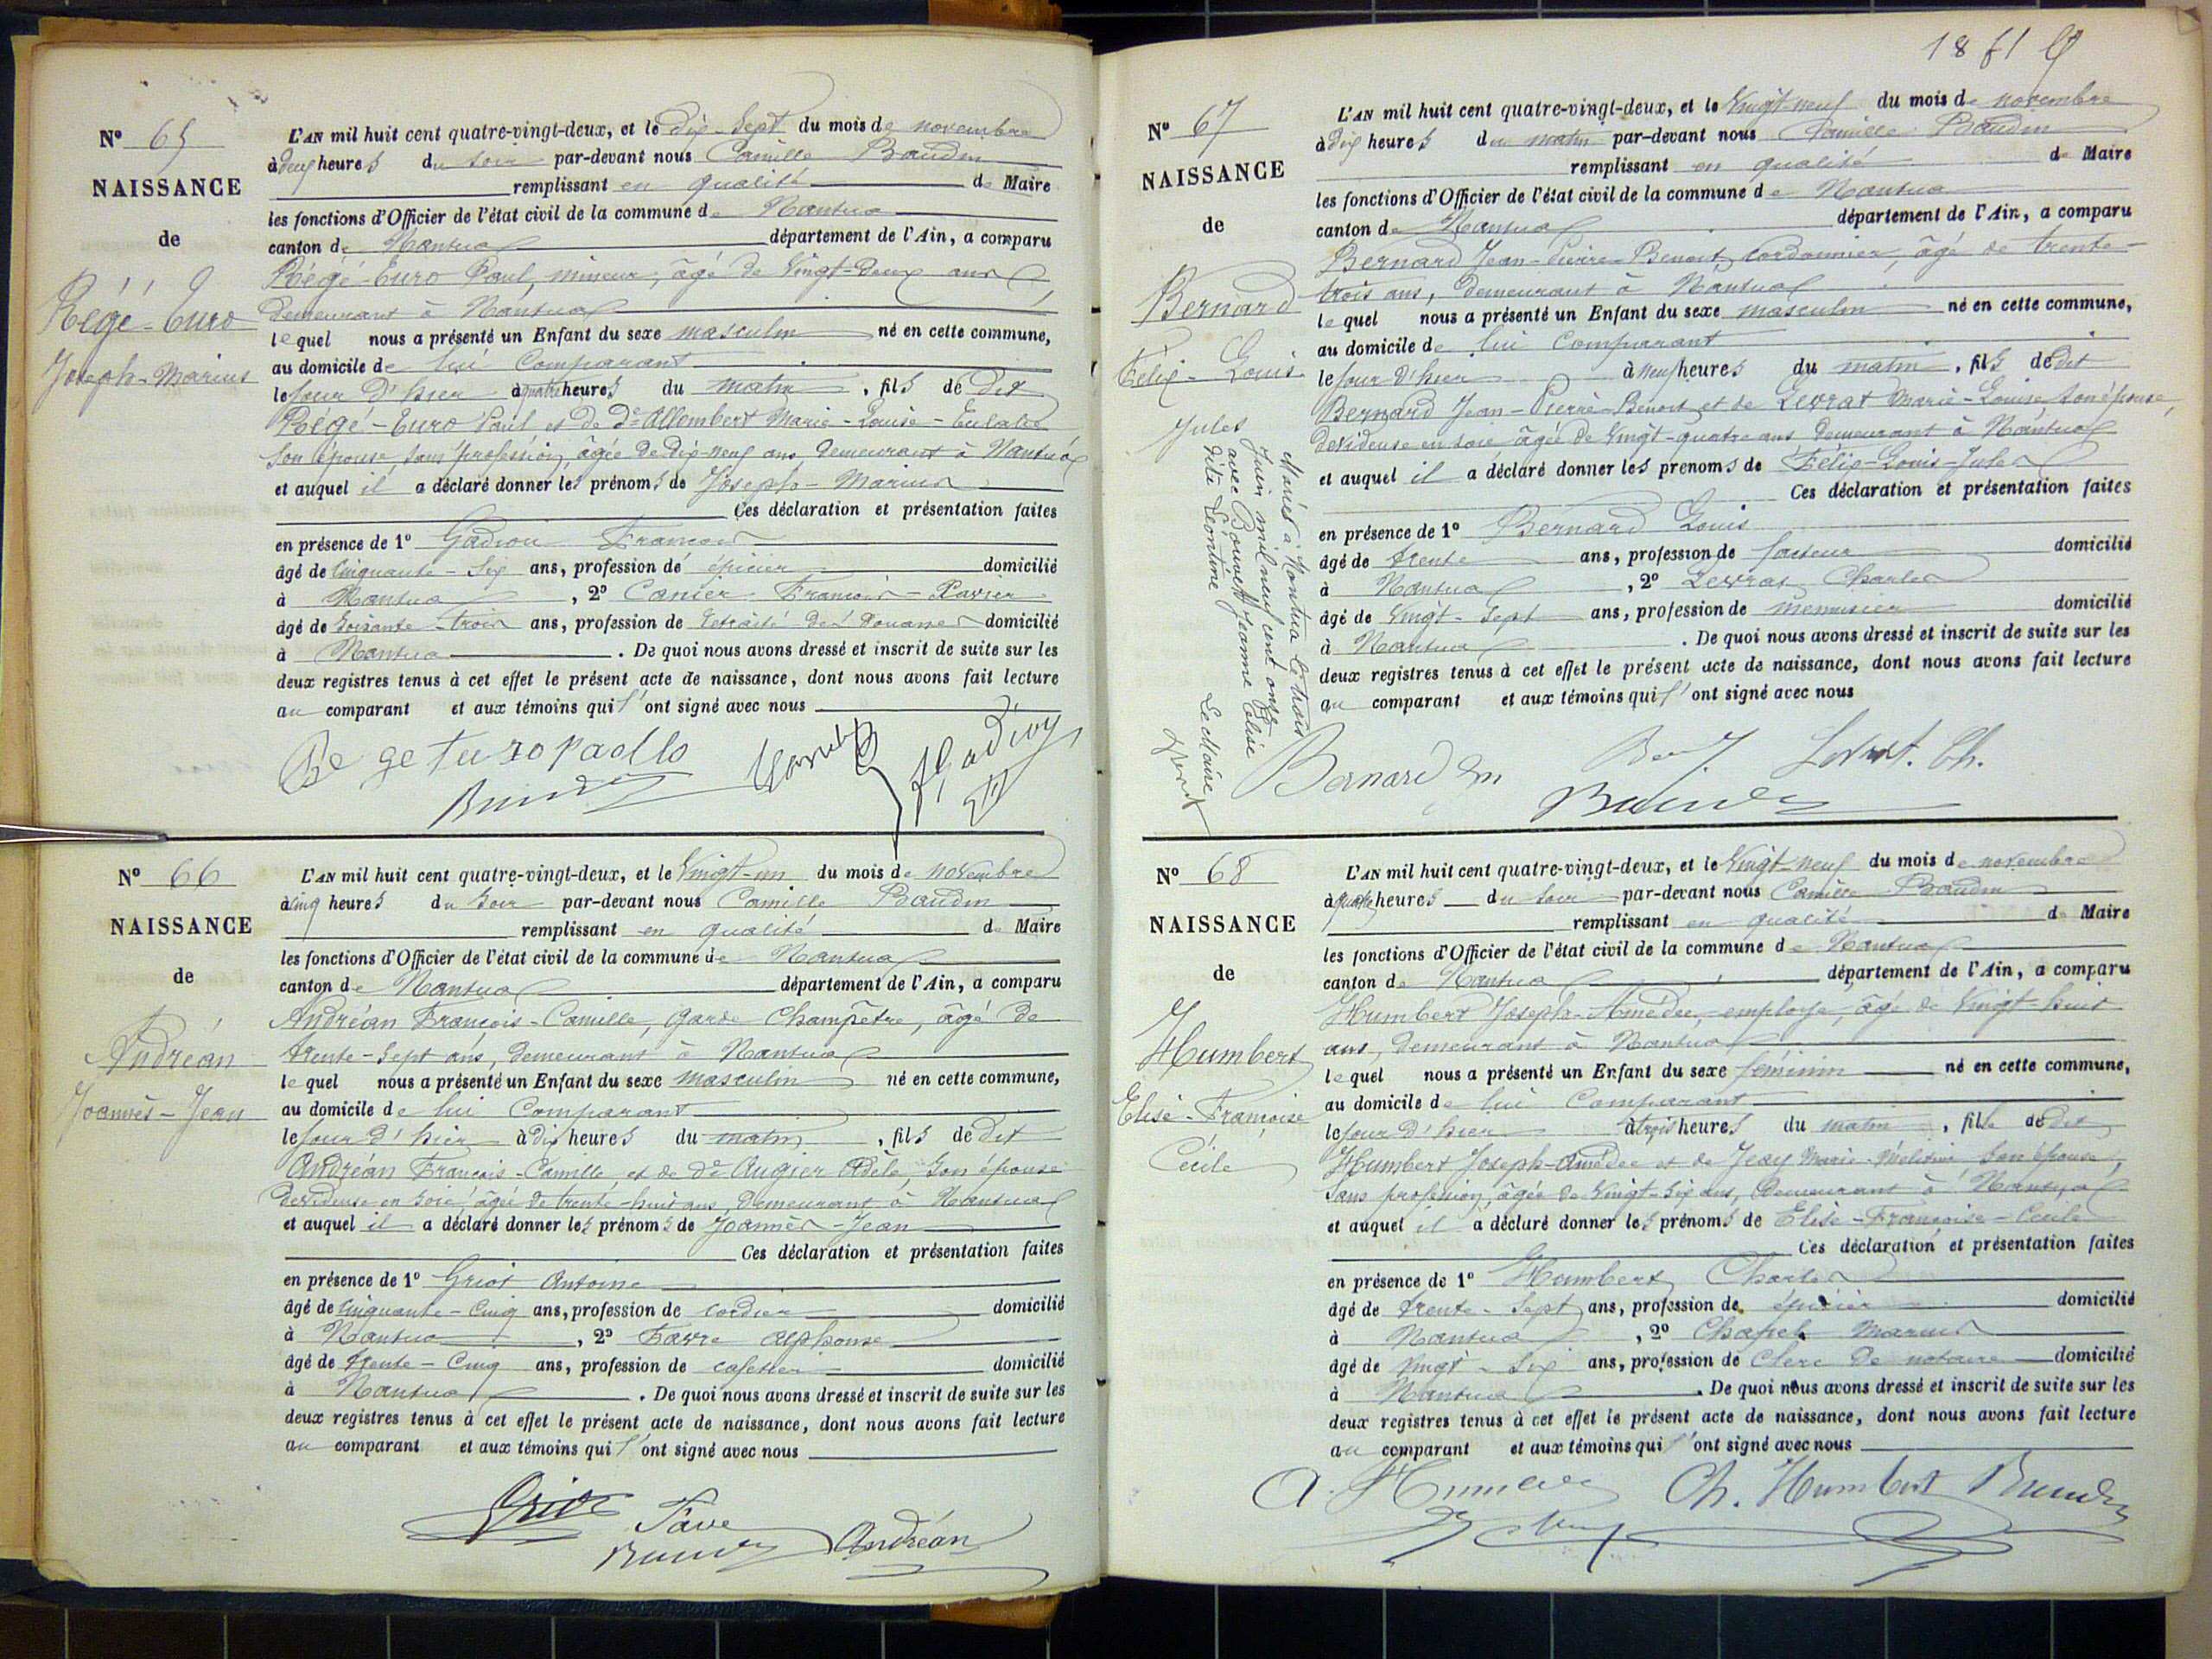 Nº 65
NAISSANCE
de
Bégé-Turo
Joseph-Marius
L'AN mil huit cent quatre-vingt-deux, et le dix-sept du mois de novembre
à deux heures du soir par-devant nous Camille Baudin
remplissant en qualité de Maire
les fonctions d'Officier de l'état civil de la commune de Nantua
canton de Nantua département de l'Ain, a comparu
Bégé-Turo Paul, mineur, âgé de vingt-deux ans
demeurant à Nantua
lequel nous a présenté un Enfant du sexe masculin né en cette commune,
au domicile de lui Comparant
le jour d'hier à quatre heures du matin, fils de dit
Bégé-Turo Paul et de De Allombert Marie-Louise-Eulalie
son épouse, sans profession, âgée de dix-neuf ans, demeurant à Nantua
et auquel il a déclaré donner les prénoms de Joseph-Marius
Ces déclaration et présentation faites
en présence de 1º Gadiou François
âgé de cinquante-six ans, profession de épicier domicilié
à Nantua, 2º Canier François-Xavier
âgé de soixante-trois ans, profession de retraité des Douanes domicilié
à Nantua. De quoi nous avons dressé et inscrit de suite sur les
deux registres tenus à cet effet le présent acte de naissance, dont nous avons fait lecture
au comparant et aux témoins qui l'ont signé avec nous
Be ge turo paollo
Nº 66
NAISSANCE
de
Andréan
Joannès-Jean
L'AN mil huit cent quatre-vingt-deux, et le vingt-un du mois de novembre
à cinq heures du soir par-devant nous Camille Baudin
remplissant en qualité de Maire
les fonctions d'Officier de l'état civil de la commune de Nantua
canton de Nantua département de l'Ain, a comparu
Andréan François-Camille, garde champêtre, âgé de
trente-sept ans, demeurant à Nantua
lequel nous a présenté un Enfant du sexe masculin né en cette commune,
au domicile de lui Comparant
le jour d'hier à dix heures du matin, fils de dit
Andréan François-Camille et de De Augier Adèle, son épouse
devideuse en soie, âgée de trente-huit ans, demeurant à Nantua
et auquel il a déclaré donner les prénoms de Joannès-Jean
Ces déclaration et présentation faites
en présence de 1º Griot Antoine
âgé de cinquante-cinq ans, profession de cordier domicilié
à Nantua, 2º Favre Alphonse
âgé de trente-cinq ans, profession de cafetier domicilié
à Nantua. De quoi nous avons dressé et inscrit de suite sur les
deux registres tenus à cet effet le présent acte de naissance, dont nous avons fait lecture
au comparant et aux témoins qui l'ont signé avec nous
Griot
Andréan
Nº 67
NAISSANCE
de
Bernard
Félix-Louis
Jules
Marié à Nantua le trois
juin mil neuf cent onze
avec Bouvet Jeanne Elise
dite Léontine
Le Maire
L'AN mil huit cent quatre-vingt-deux, et le vingt-neuf du mois de novembre
à dix heures du matin par-devant nous Camille Baudin
remplissant en qualité de Maire
les fonctions d'Officier de l'état civil de la commune de Nantua
canton de Nantua département de l'Ain, a comparu
Bernard Jean-Pierre-Benoit, cordonnier, âgé de trente-
trois ans, demeurant à Nantua
lequel nous a présenté un Enfant du sexe masculin né en cette commune,
au domicile de lui Comparant
le jour d'hier à neuf heures du matin, fils de dit
Bernard Jean-Pierre-Benoit et de Levrat Marie-Louise son épouse,
devideuse en soie âgée de vingt-quatre ans demeurant à Nantua
et auquel il a déclaré donner les prénoms de Félix-Louis-Jules
Ces déclaration et présentation faites
en présence de 1º Bernard Louis
âgé de trente ans, profession de facteur domicilié
à Nantua, 2º Levrat Charles
âgé de vingt-sept ans, profession de menuisier domicilié
à Nantua. De quoi nous avons dressé et inscrit de suite sur les
deux registres tenus à cet effet le présent acte de naissance, dont nous avons fait lecture
au comparant et aux témoins qui l'ont signé avec nous
Bernard
Levrat. Ch.
Nº 68
NAISSANCE
de
Humbert
Elise-Françoise
Cécile
L'AN mil huit cent quatre-vingt-deux, et le vingt-neuf du mois de novembre
à quatre heures du soir par-devant nous Camille Baudin
remplissant en qualité de Maire
les fonctions d'Officier de l'état civil de la commune de Nantua
canton de Nantua département de l'Ain, a comparu
Humbert Joseph-Amédée, employé, âgé de vingt-huit
ans, demeurant à Nantua
lequel nous a présenté un Enfant du sexe féminin né en cette commune,
au domicile de lui Comparant
le jour d'hier à trois heures du matin, fille de dit
Humbert Joseph-Amédée et de Jeay Marie-Mélitine son épouse,
sans profession, âgée de vingt-six ans, demeurant à Nantua
et auquel il a déclaré donner les prénoms de Elise-Françoise-Cécile
Ces déclaration et présentation faites
en présence de 1º Humbert Charles
âgé de trente-sept ans, profession de épicier domicilié
à Nantua, 2º Chapel Marius
âgé de vingt-six ans, profession de clerc de notaire domicilié
à Nantua. De quoi nous avons dressé et inscrit de suite sur les
deux registres tenus à cet effet le présent acte de naissance, dont nous avons fait lecture
au comparant et aux témoins qui l'ont signé avec nous
Ch. Humbert